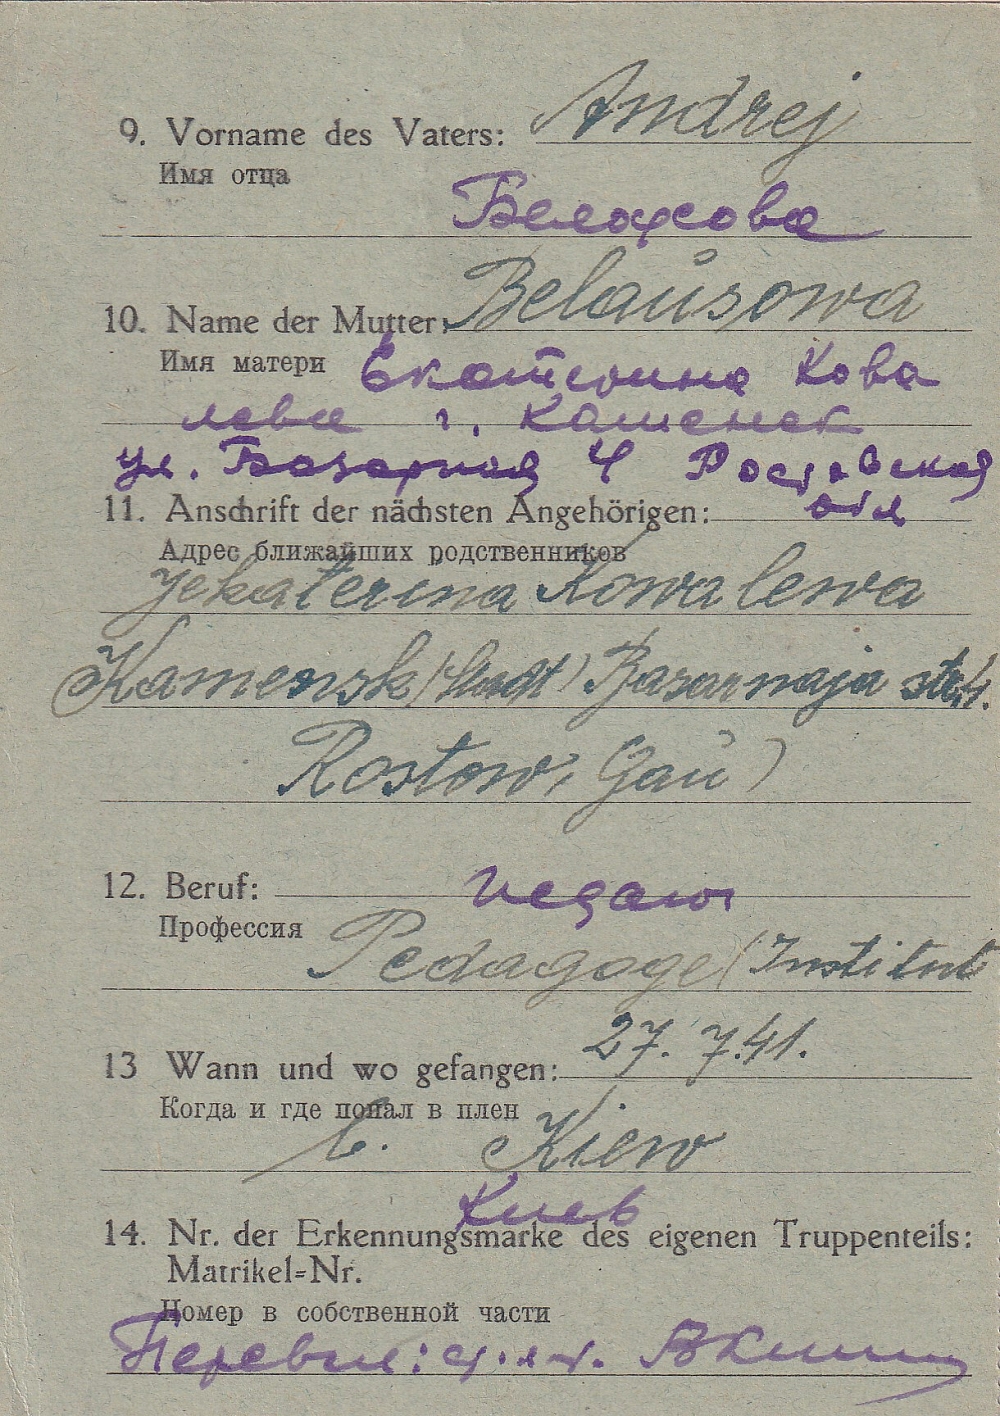 9. Vorname des Vaters: Andrej
Имя отца
Белоусова
10. Name der Mutter: Belaŭsowa
Имя матери Екатерина Кова
лева г. Каменск
ул. Базарная 4 Ростовская
11. Anschrift der nächsten Angehörigen: обл
Адрес ближайших родственников
Jekaterina Kowalewa
Kamensk (Stadt) Basarnaja str. 4.
Rostow, Gaŭ)
12. Beruf: педагог
Профессия
Pedagoge (Institut
13 Wann und wo gefangen: 27. 7. 41.
Когда и где попал в плен
b. Kiew
Киев
14. Nr. der Erkennungsmarke des eigenen Truppenteils:
Matrikel=Nr.
Номер в собственной части
Перевел: